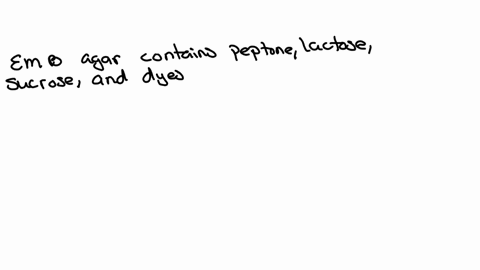 EMB agar contains peptone, lactose,
sucrose, and dyes